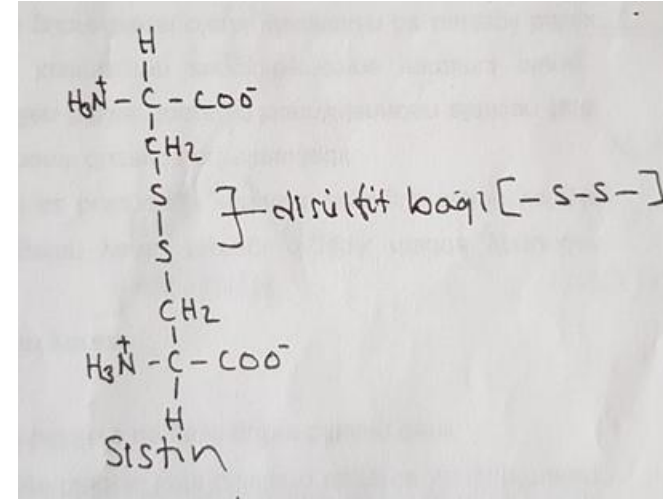 H
H₃N⁺ - C - COO⁻
CH₂
S
disülfit bağı [- S-S-]
S
CH₂
H₃N⁺ - C - COO⁻
H
Sistin